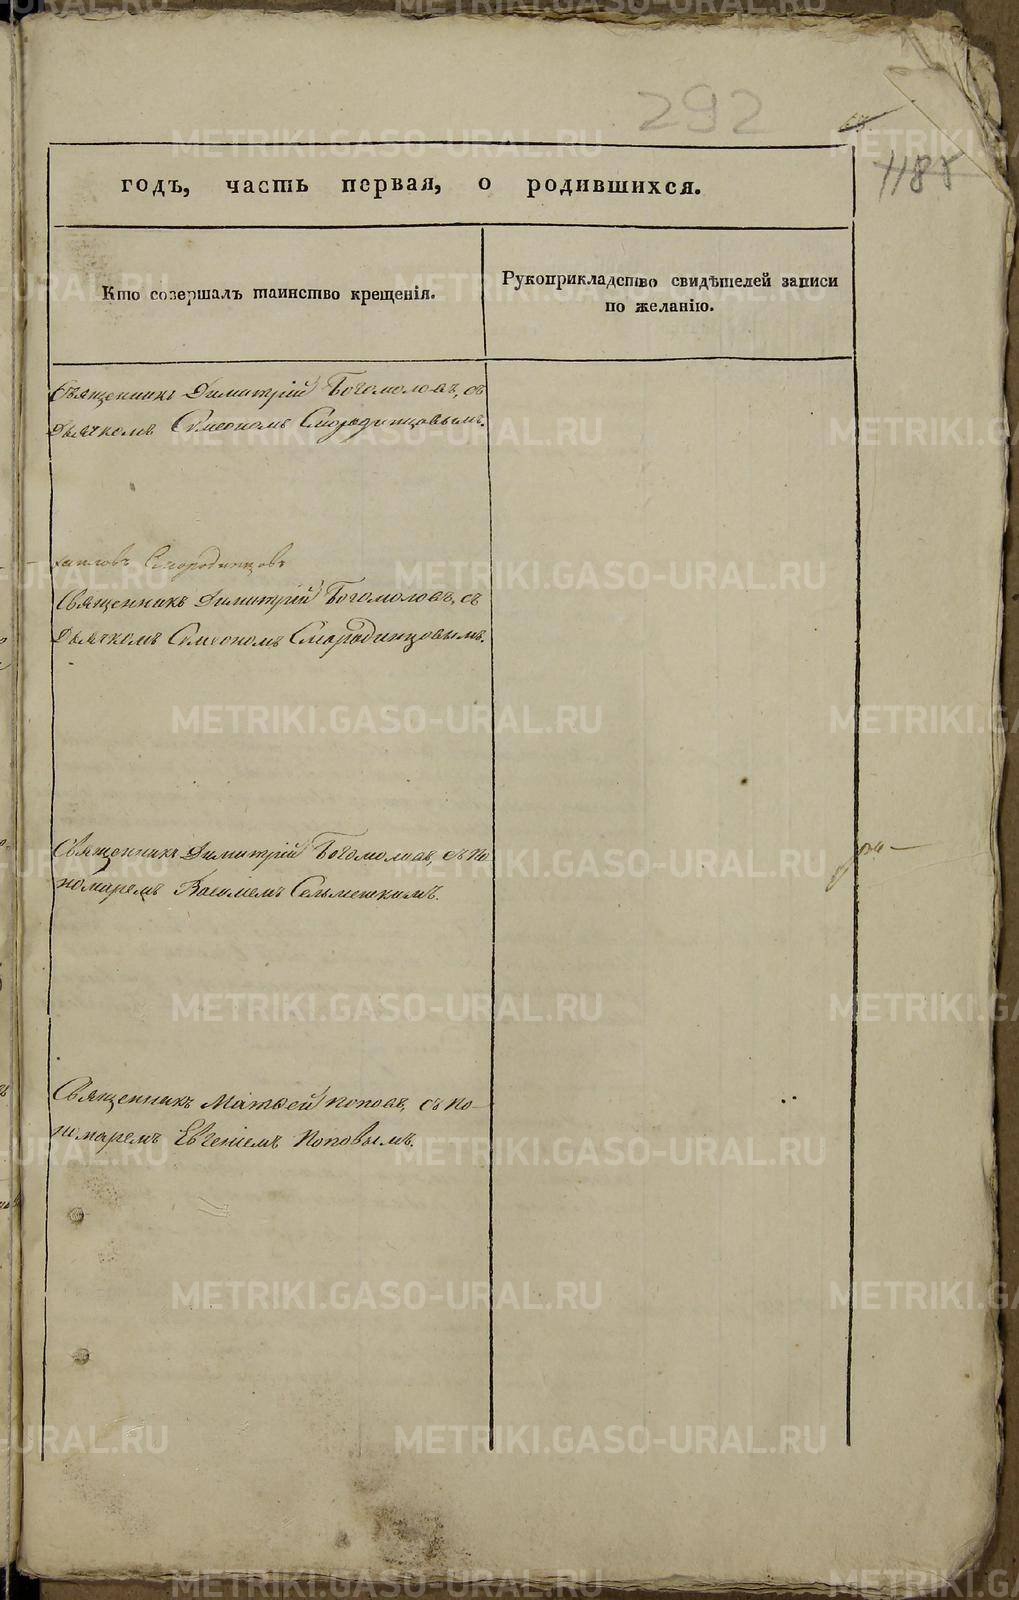 292
118
годъ, часть первая, о родившихся.
Кто совершалъ таинство крещенія.
Рукоприкладство свидѣтелей записи
по желанію.
Священникъ Димитрій Богомоловъ, съ
Дьячкомъ Симеономъ Смородинцовымъ.
Смородинцовъ
Священникъ Димитрій Богомоловъ, съ
Дьячкомъ Симеономъ Смородинцовымъ.
Священникъ Димитрій Богомоловъ, съ По
номаремъ Василіемъ
Священникъ Матѳей Поповъ, съ По-
номаремъ Евгеніемъ Поповымъ.
METRIKI.GASO-URAL.RU